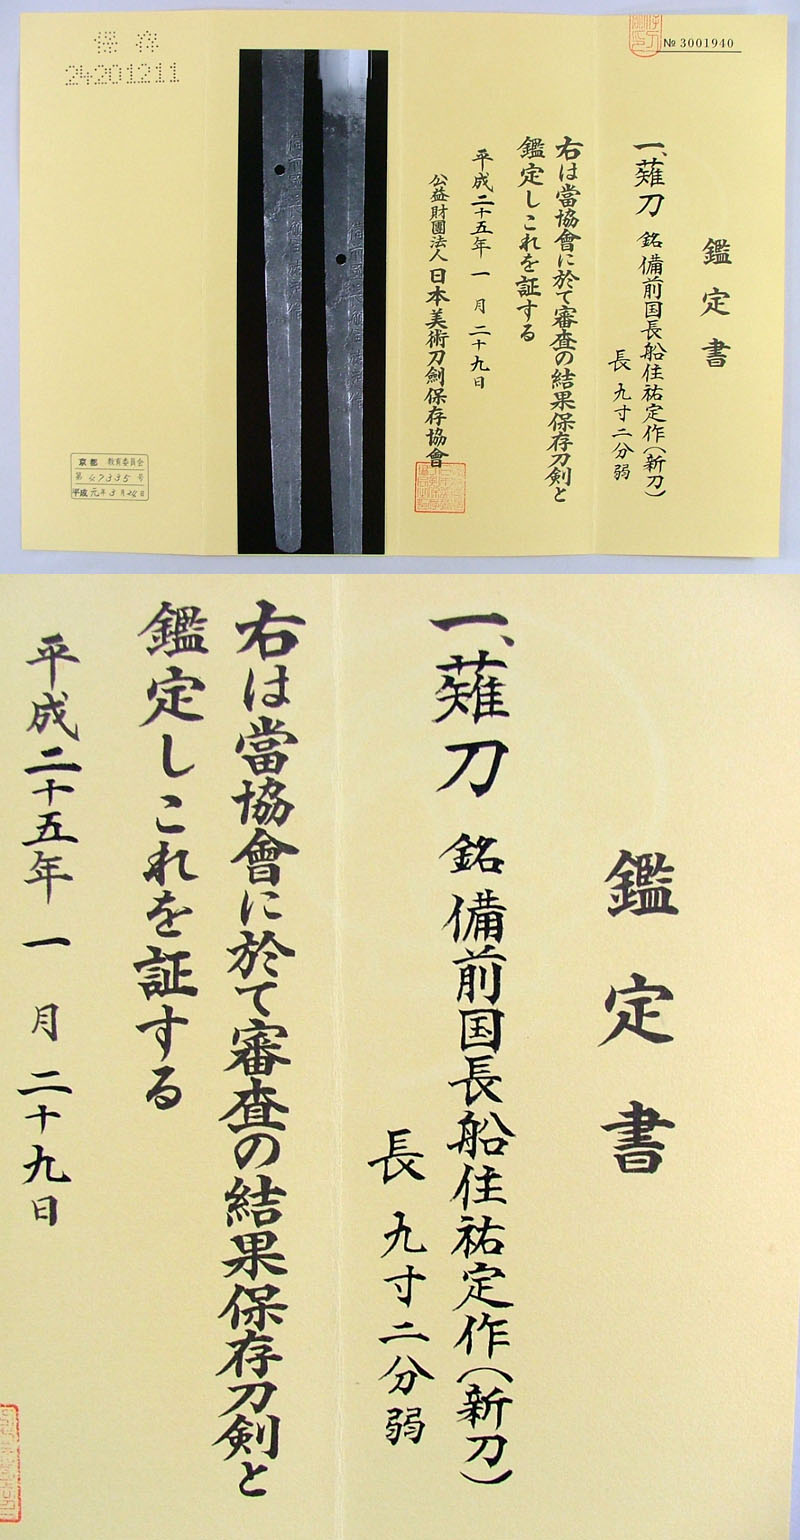 № 3001940
鑑定書
一、薙刀 銘 備前国長船住祐定作(新刀)
長 九寸二分弱
右は當協會に於て審査の結果保存刀剣と
鑑定しこれを証する
平成二十五年 一 月 二十九日
公益財團法人 日本美術刀劍保存協會
保存
24201211
京都 教育委員会
第 47335 号
平成 元年 3月 28日
鑑定書
一、薙刀 銘 備前国長船住祐定作(新刀)
長 九寸二分弱
右は當協會に於て審査の結果保存刀剣と
鑑定しこれを証する
平成二十五年 一 月 二十九日